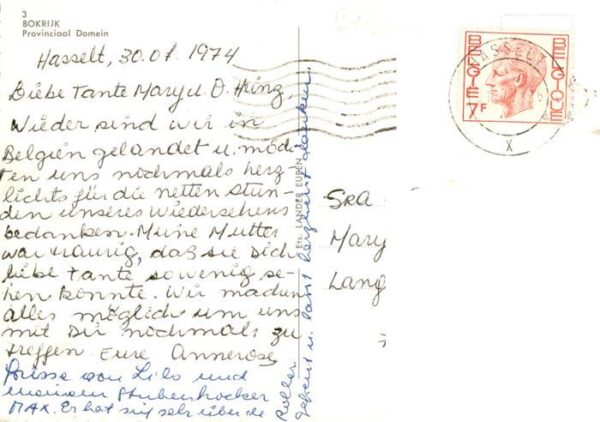 3
BOKRIJK
Provinciaal Domein
Hasselt, 30.07.1974
Liebe Tante Mary u. O. Heinz,
Wieder sind wir in
Belgien gelandet u. möch-
ten uns nochmals herz-
lichts für die netten Stun-
den unseres Wiedersehens
bedanken. Meine Mutter
war traurig, daß sie Dich
liebe Tante so wenig se-
hen konnte. Wir machen
alles möglich um uns
mit Dir nochmals zu
treffen. Eure Annerose
Grüsse von Lilo und
meinem Stubenhocker
MAX. Er hat sich sehr über die
Roller
gefreut u. lässt herzlichst danken.
LANDER EUPEN
BELGIE BELGIQUE
7F
HASSELT
X
SRA
Mary
Lang